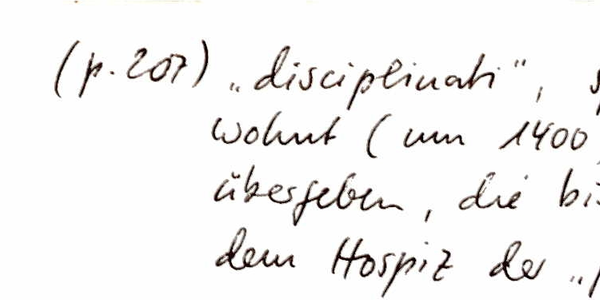 (p. 207) „disciplinati",
wohnt (um 1400
übergeben, die
dem Hospiz der „